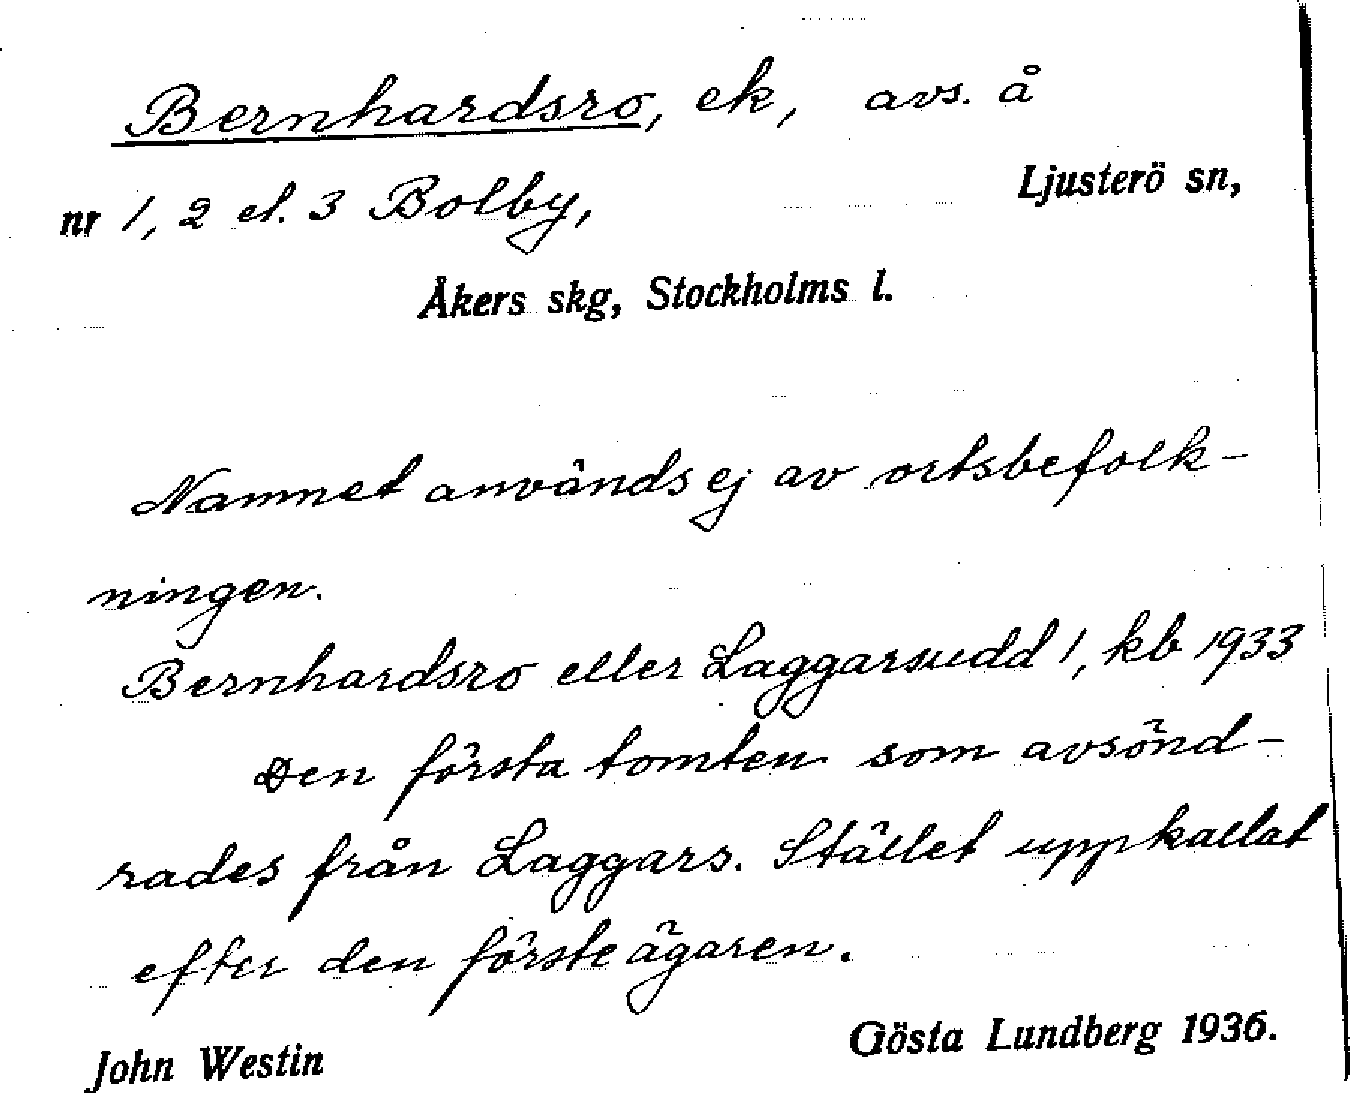 Bernhardsro, ek, avs. å
nr 1, 2 el. 3 Bolby, Ljusterö sn,
Åkers skg, Stockholms l.
Namnet används ej av ortsbefolk-
ningen.
Bernhardsro eller Laggarsudd 1, kb 1933
Den första tomten som avsönd-
rades från Laggars. Stället uppkallat
efter den förste ägaren.
John Westin Gösta Lundberg 1936.